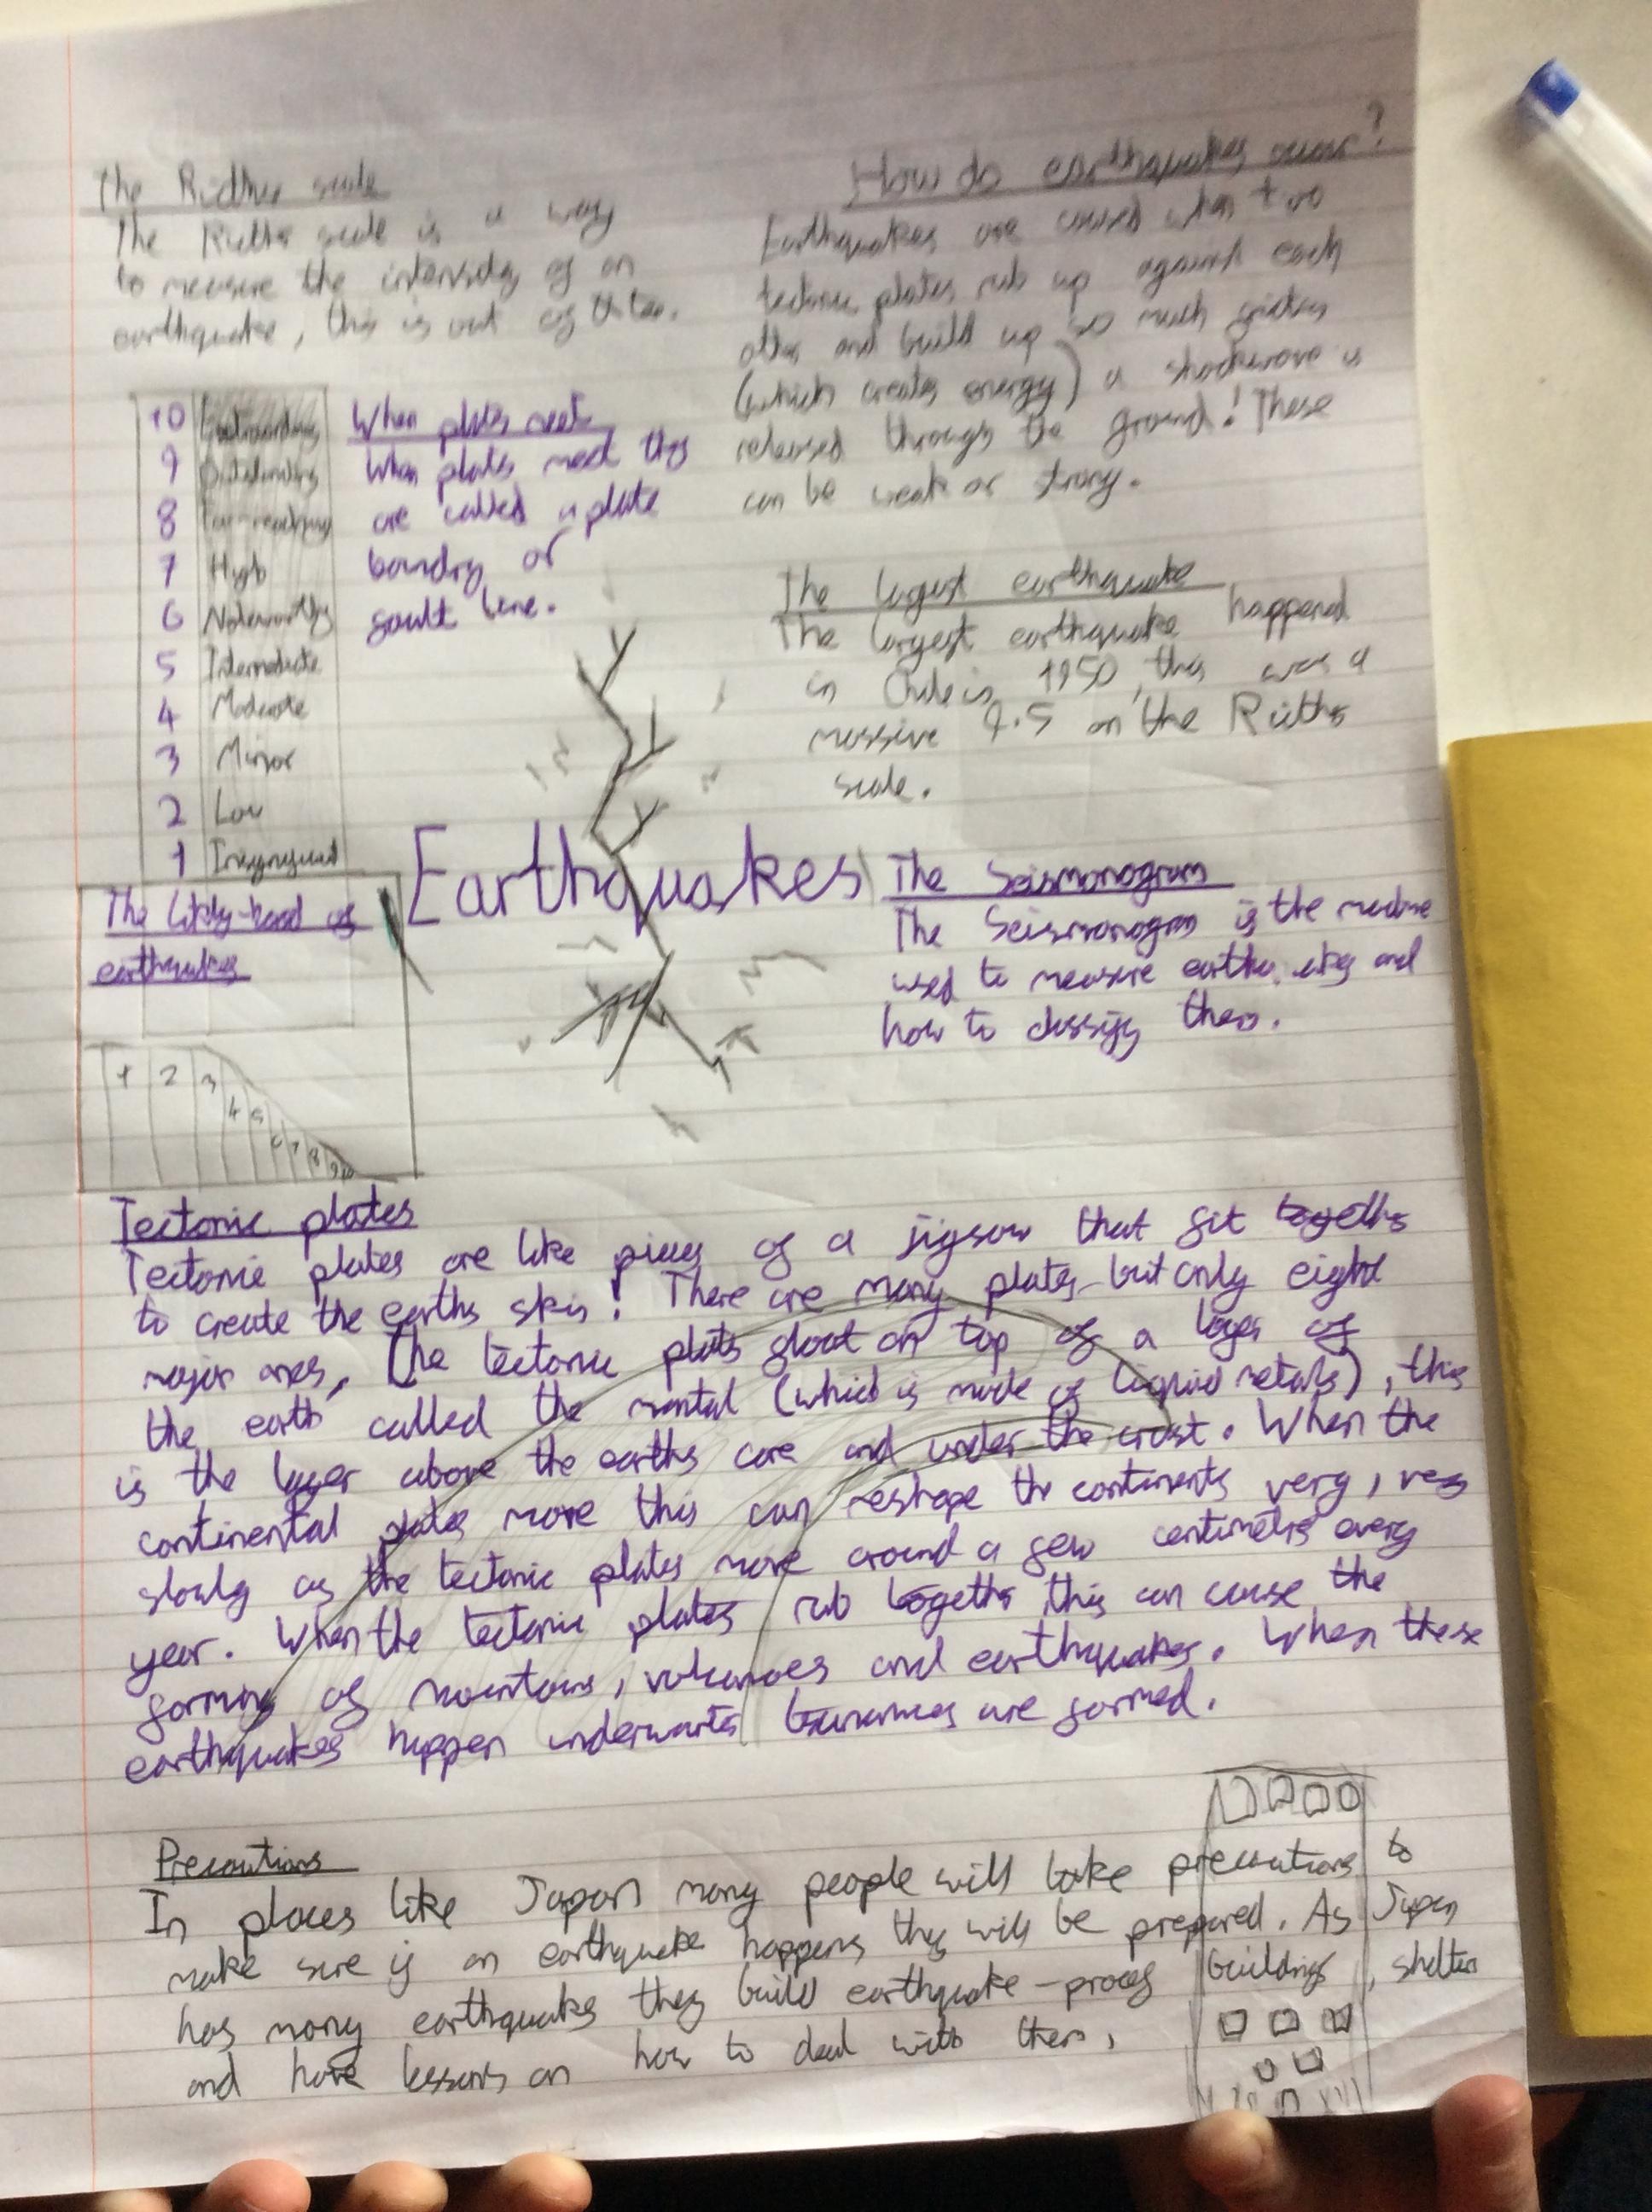 The Ricther scale
The Ricther scale is a way
to measure the intensity of an
earthquake, this is out of
10
9 Outstanding
8 Far-reaching
7 High
6 Noteworthy
5 Intermediate
4 Moderate
3 Minor
2 Low
1
When plates meet
When plates meet they
are called a plate
boundry or
fault line.
How do earthquakes occur?
Earthquakes are caused when two
tectonic plates rub up against each
other and build up so much friction
(which creates energy) a shockwave is
released through the ground! These
can be weak or strong.
The largest earthquake
The largest earthquake happened
in Chile in 1950, this was a
massive 9.5 on the Ricther
scale.
Earthquakes
The Seismonogram
The Seismonogram is the machine
used to measure earthquakes and
how to classify them.
The likely-hood of
earthquakes
1 2 3 4 5 6 7 8 9 10
Tectonic plates
Tectonic plates are like pieces of a jigsaw that fit together
to create the earths skin! There are many plates but only eight
major ones, The tectonic plates float on top of a layer of
the earth called the mantal (which is made of liquid metals), this
is the layer above the earths core and under the crust. When the
continental plates move this can reshape the continents very, very
slowly as the tectonic plates move around a few centimetres every
year. When the tectonic plates rub together this can cause the
forming of mountains, volcanoes and earthquakes. When these
earthquakes happen underwater are formed.
Precautions
In places like Japan many people will take precautions to
make sure if an earthquake happens they will be prepared. As Japan
has many earthquakes they build earthquake-proof buildings, shelter
and have lessons on how to deal with them.